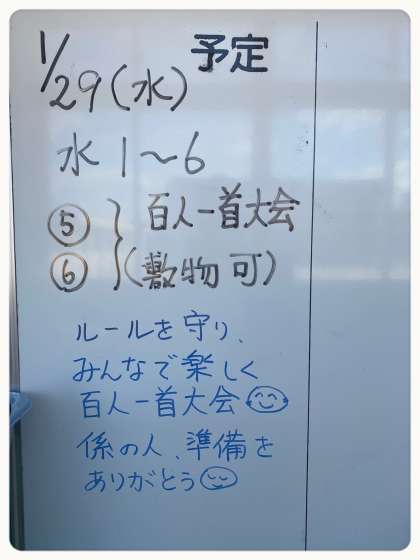 予定
1/29(水)
水 1～6
⑤ 百人一首大会
⑥ (敷物可)
ルールを守り、
みんなで楽しく
百人一首大会
係の人、準備を
ありがとう